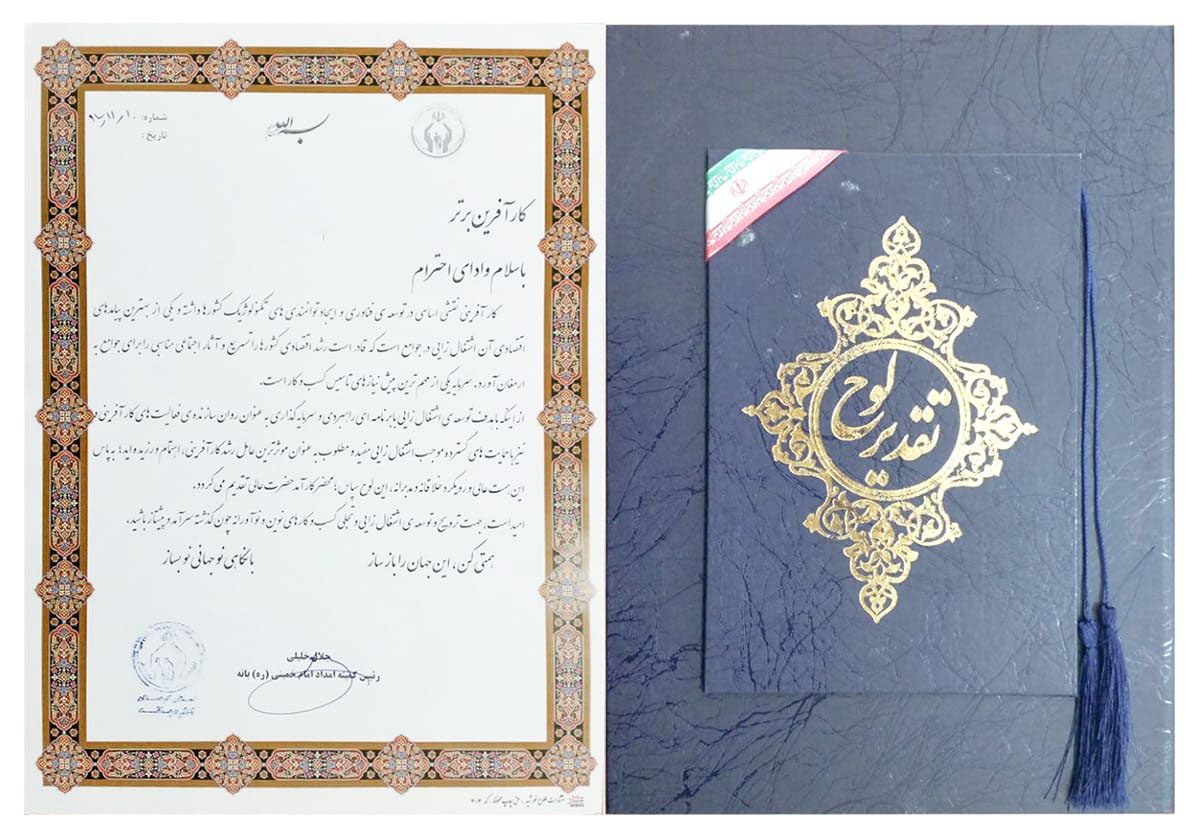 بسم الله
شماره: ۹۷/۱۱/۱۰
تاریخ:
کارآفرین برتر
باسلام وادای احترام
کارآفرینی نقشی اساسی در توسعه ی فناوری و ایجاد توانمندی های تکنولوژیک کشورها داشته و یکی از بهترین پیامدهای
اقتصادی آن اشتغال زایی در جوامع است که قادر است رشد اقتصادی کشورها را تسریع و آثار اجتماعی مناسبی را برای جوامع به
ارمغان آورد. سرمایه یکی از مهم ترین پیش نیازهای تاسیس کسب و کار است.
از اینکه باهدف توسعه ی اشتغال زایی با برنامه ای راهبردی و سرمایه گذاری به عنوان روان سازنده ی فعالیت های کارآفرینی و
نیز با حمایت های گسترده موجب اشتغال زایی مفید و مطلوب به عنوان موثرترین عامل رشد کارآفرینی، اهتمام ورزیده اید؛ به پاس
این همت عالی و رویکرد خلاقانه و مدبرانه، این لوح سپاس؛ محضر کارآمد حضرت عالی تقدیم می گردد.
امید است، جهت ترویج و توسعه ی اشتغال زایی و تجلی کسب و کارهای نوین و نوآورانه چون گذشته سرآمد و پیشتاز باشید.
همتی کن، این جهان را باز ساز با نگاهی نو جهانی نو بساز
جلال خلیلی
رئیس کمیته امداد امام خمینی (ره) بانه
لوح
تقدیر